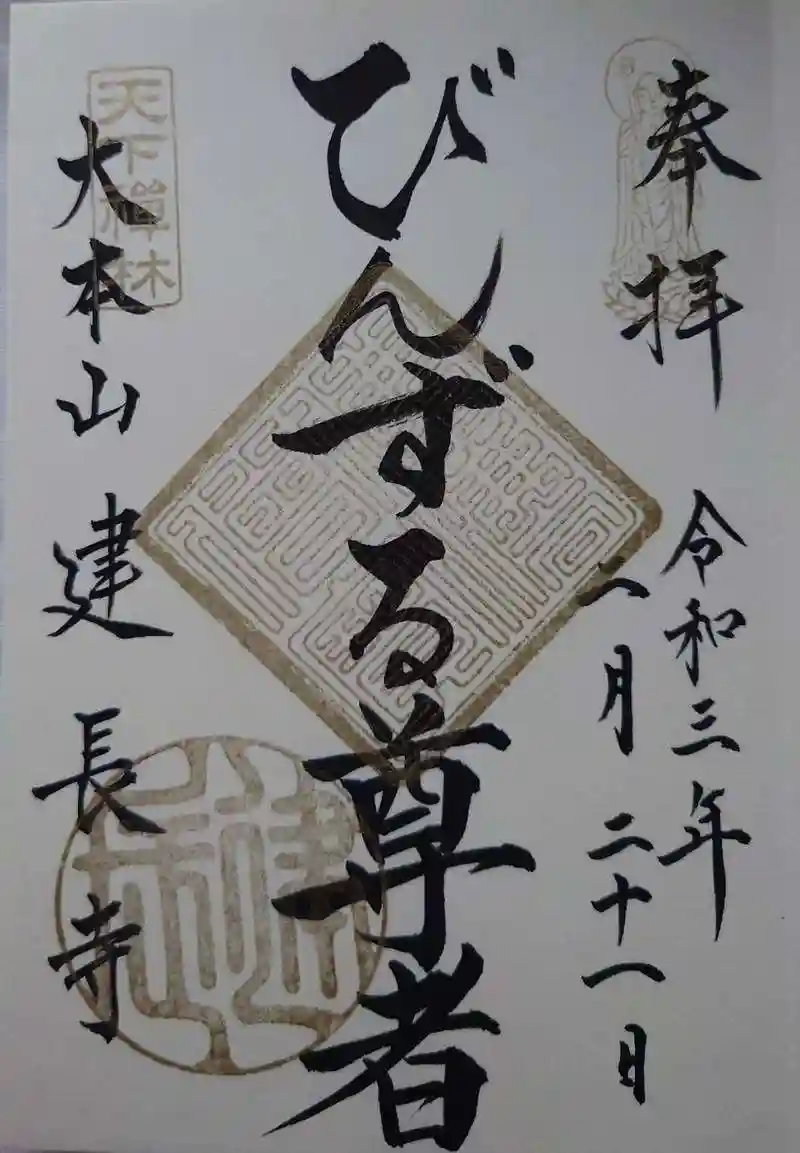 奉拝
令和三年
八月二十一日
びんずる尊者
天下禪林
大本山建長寺